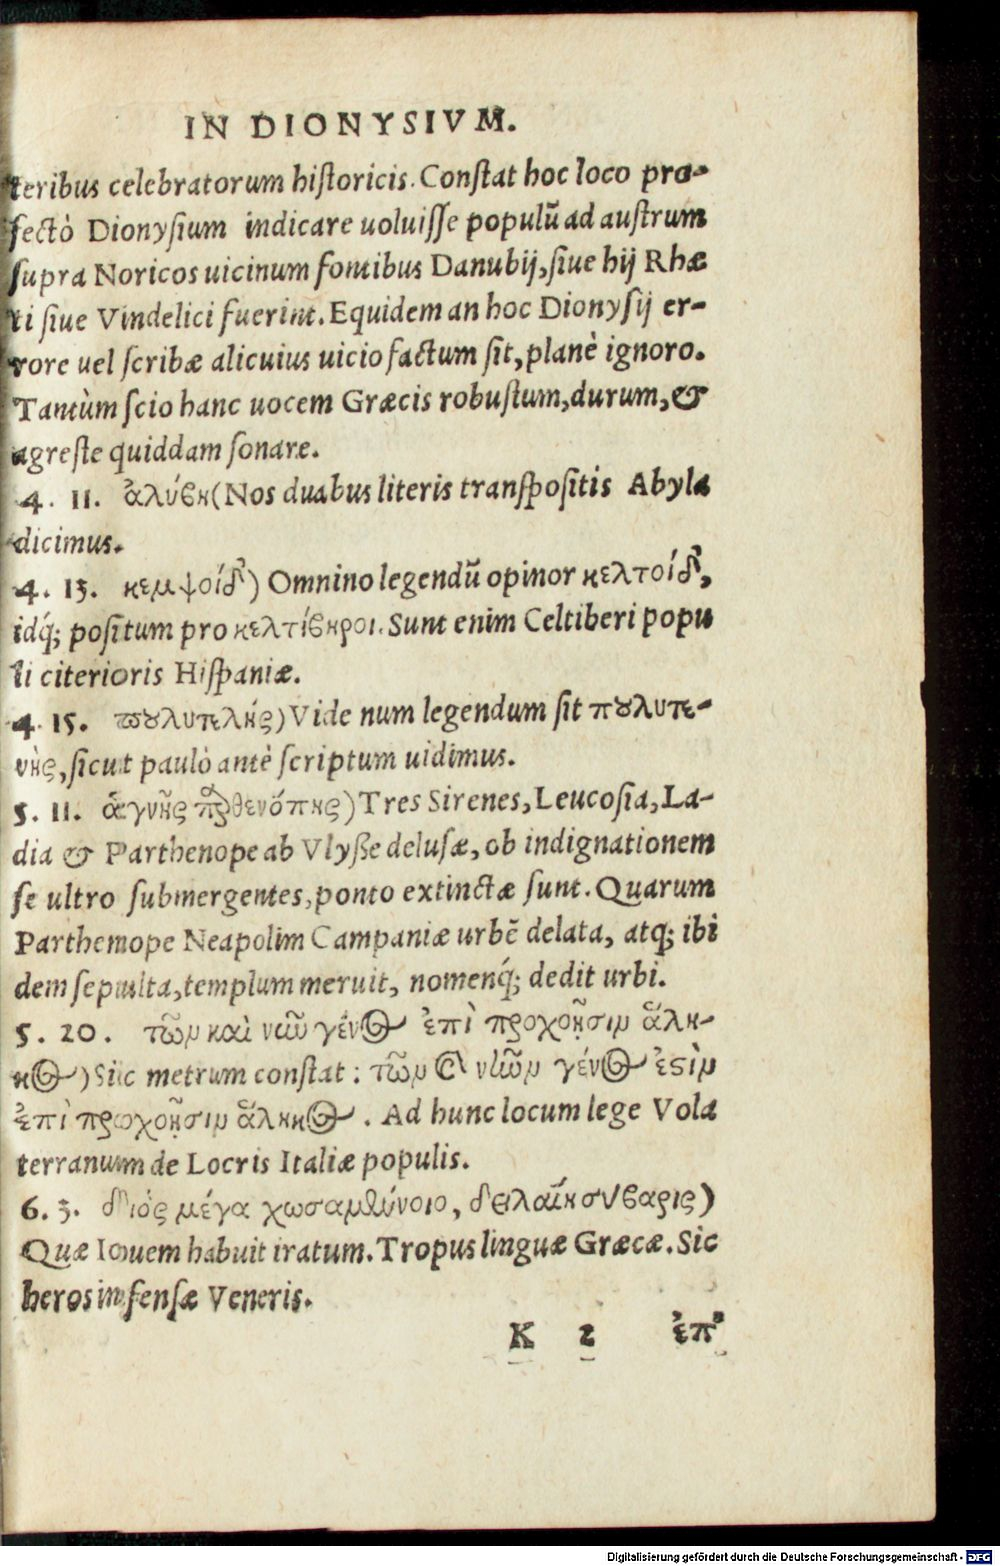 IN DIONYSIVM.
teribus celebratorum hiſtoricis. Conſtat hoc loco pro-
fectò Dionyſium indicare uoluiſſe populū ad auſtrum
ſupra Noricos uicinum fontibus Danubij, ſiue hij Rhæ
ti ſiue Vindelici fuerint. Equidem an hoc Dionyſij er-
rore uel ſcribæ alicuius uicio factum ſit, planè ignoro.
Tantùm ſcio hanc uocem Græcis robuſtum, durum, &
agreſte quiddam ſonare.
4. 11. ἀλύβη(Nos duabus literis tranſpoſitis Abyla
dicimus.
4. 13. κεμψοίδ') Omnino legendū opinor κελτοίδ',
idq́; poſitum pro κελτίβηροι. Sunt enim Celtiberi popu
li citerioris Hiſpaniæ.
4. 15. πȣλυτελής) Vide num legendum ſit πȣλυτε-
νὴς, ſicut paulò antè ſcriptum uidimus.
5. 11. ἁγνῆς παρθενόπης) Tres Sirenes, Leucoſia, La-
dia & Parthenope ab Vlyſſe deluſæ, ob indignationem
ſe ultro ſubmergentes, ponto extinctæ ſunt. Quarum
Parthenope Neapolim Campaniæ urbē delata, atq; ibi
dem ſepulta, templum meruit, nomenq́; dedit urbi.
5. 20. τῶν καὶ νῦν γένος ἐπὶ προχοῇσιν ἄλη-
κος) Sic metrum conſtat: τῶν καὶ νῶν γένος ἐςὶν
ἐπὶ πρωχοῇσιν ἄληκος. Ad hunc locum lege Vola
terranum de Locris Italiæ populis.
6. 3. διὸς μέγα χωσαμθύνοιο, δειλαίη σύβαρις)
Quæ Iouem habuit iratum. Tropus linguæ Græcæ. Sic
heros infenſæ Veneris.
K 2 ἐπ'
Digitalisierung gefördert durch die Deutsche Forschungsgemeinschaft - DFG